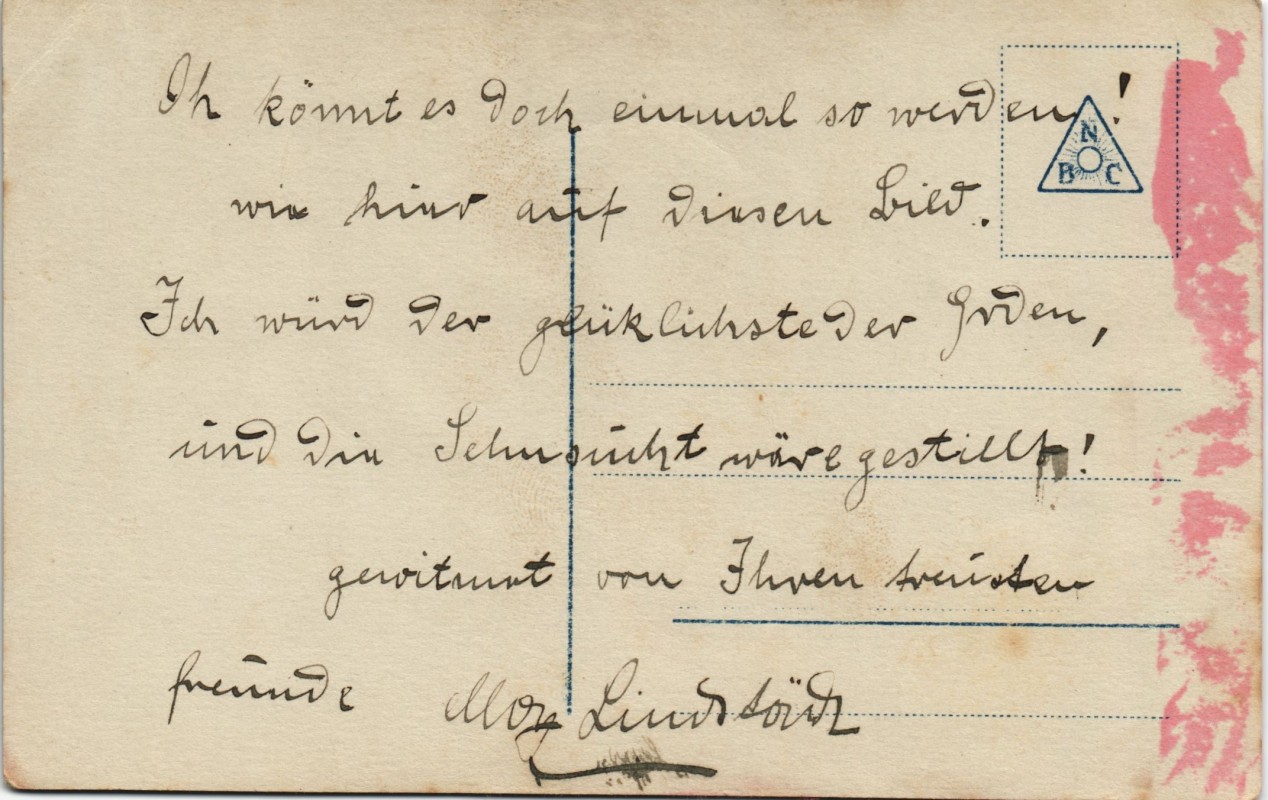 Oh könnt es doch einmal so werden!
wie hier auf diesen Bild.
Ich würd der glüklichste der Erden,
und die Sehnsucht wäre gestillt!
gewitmet von Ihren treusten
freunde Max
N
B C